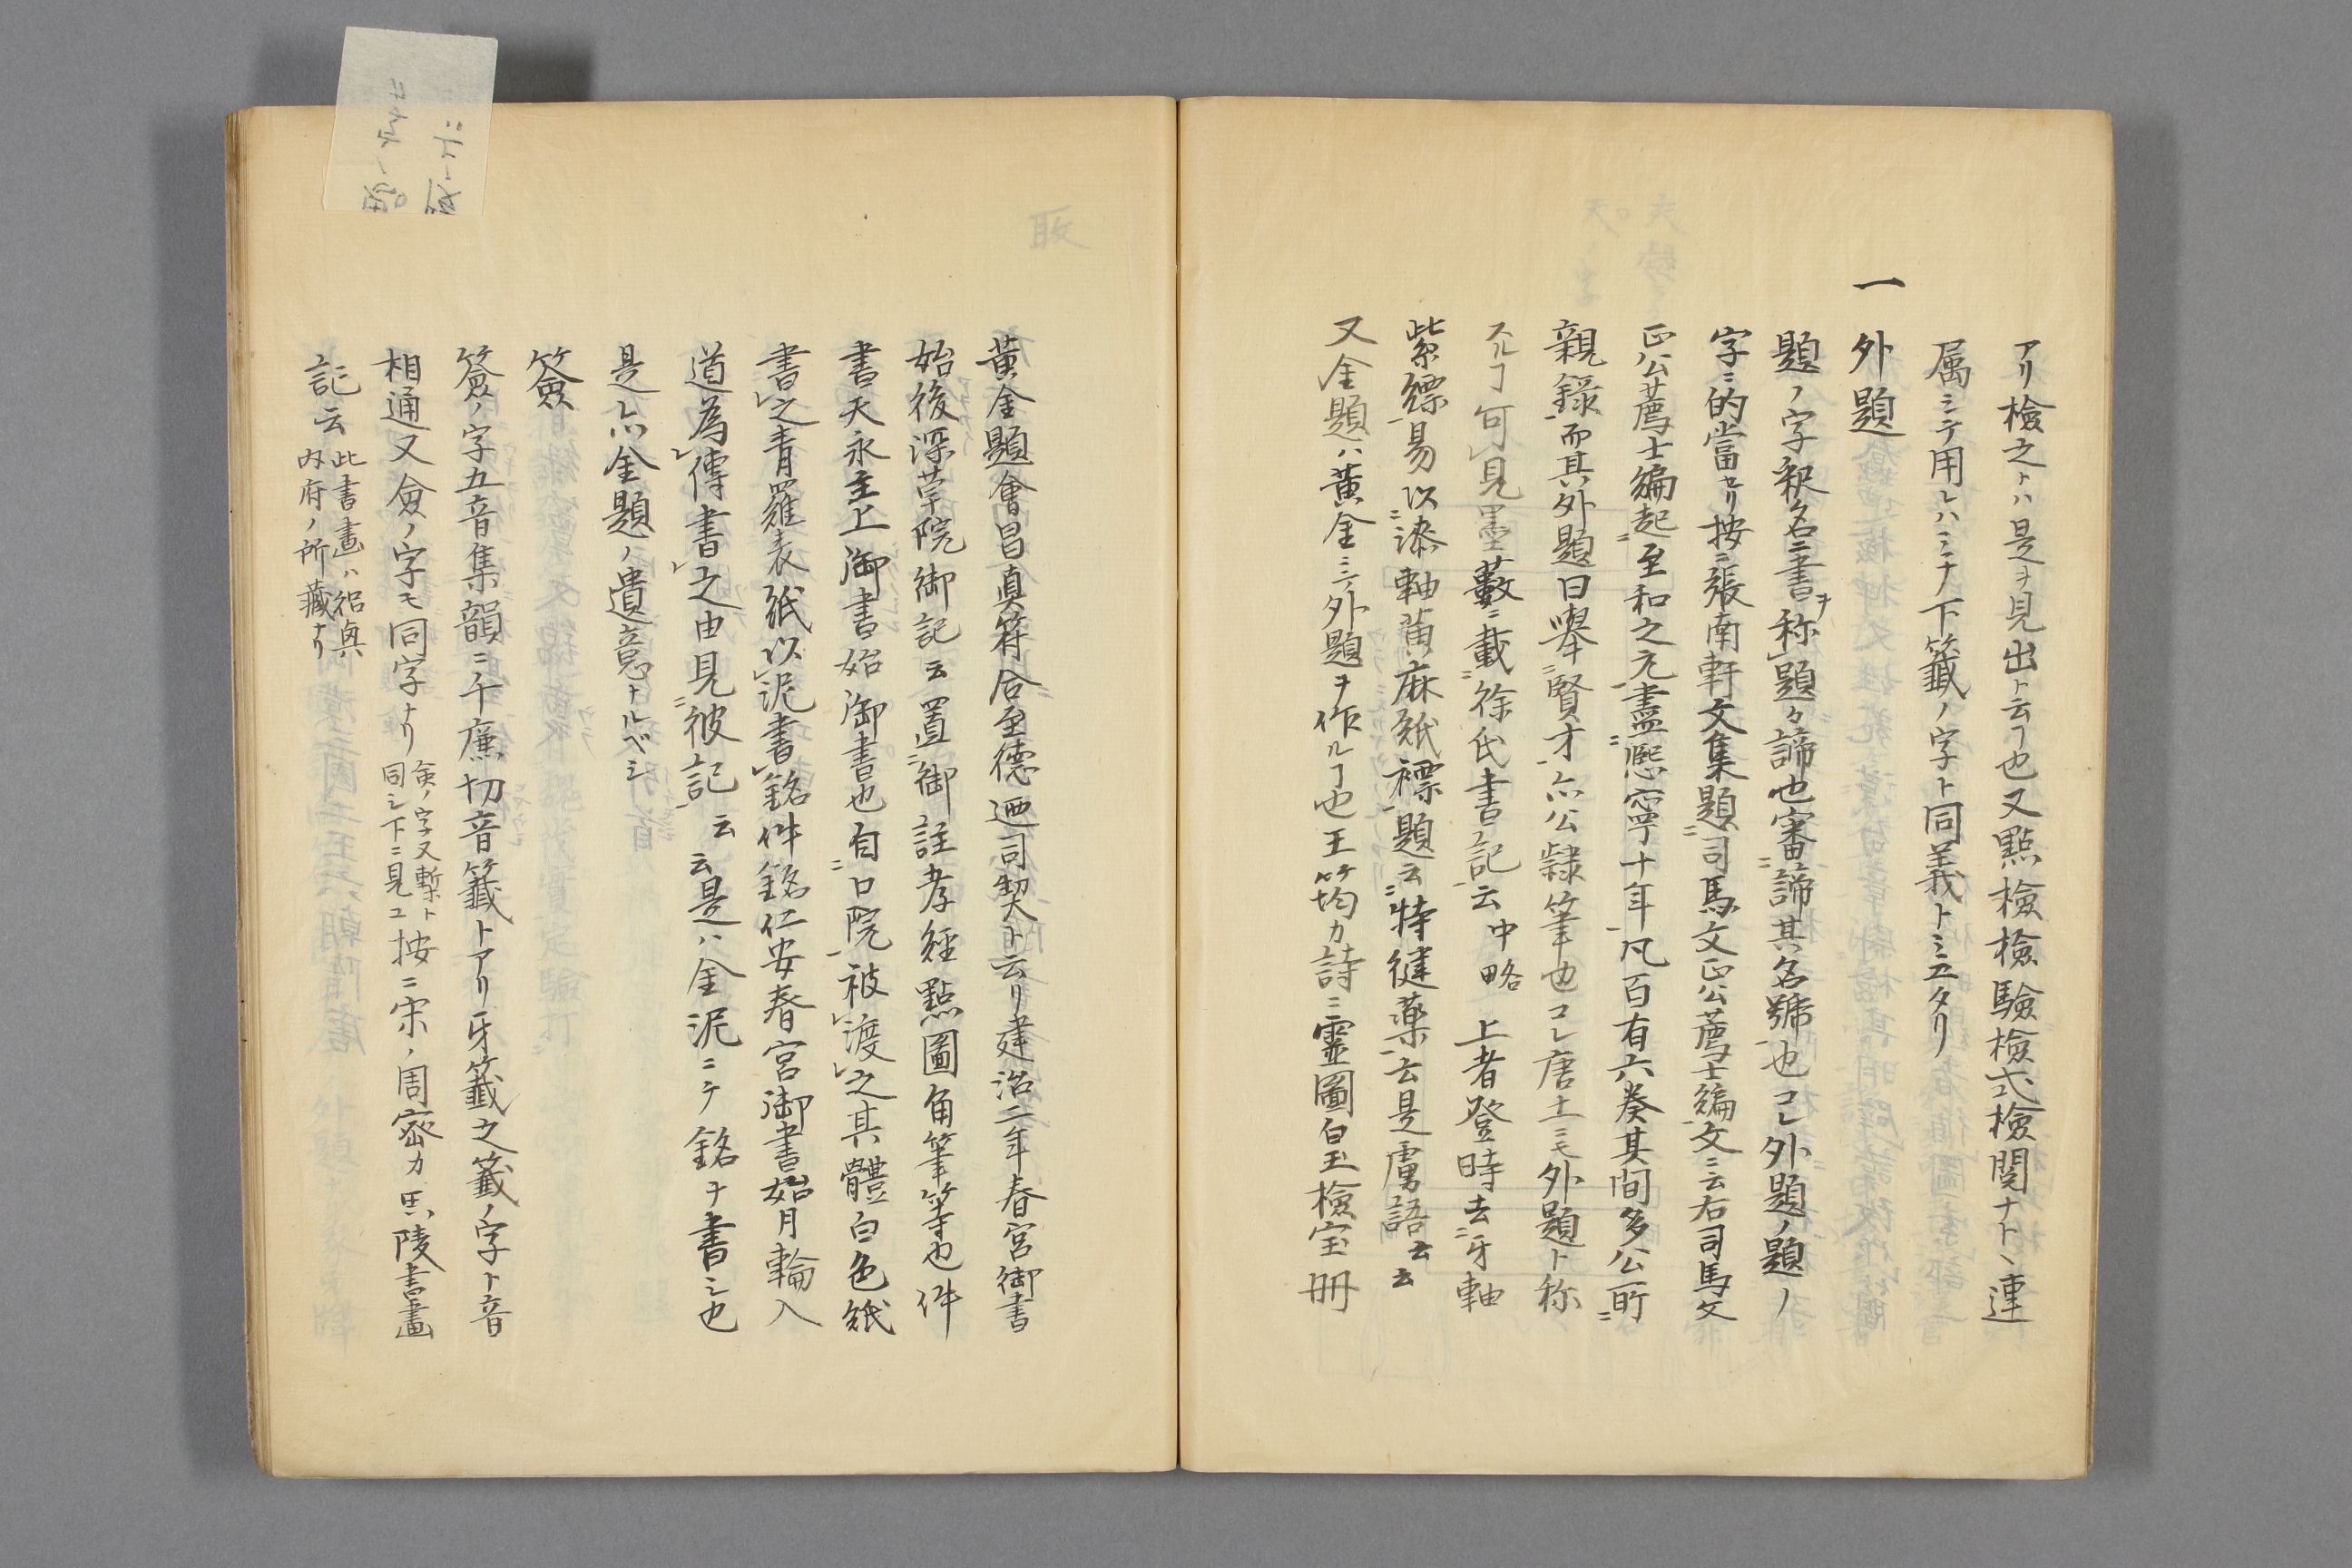 アリ檢之トハ是ヲ見出ト云フ也又點檢檢驗檢式檢閲ナト、連
属シテ用レハミナ下籤ノ字ト同義トミエタリ
一 外題
題ノ字釈名ニ書ヲ称題々諦也審ニ諦其名號也コレ外題ノ題ノ
字ニ的當セリ按ニ張南軒文集題ニ司馬文正公薦士編文ニ云右司馬文
正公薦士編起ニ至和之元盡ニ熙寧十年凡百有六奏其間多公所ニ
親錄而其外題曰擧ニ賢才亦公隷筆也コレ唐土ニモ外題ト称
スルヿ可見墨藪ニ載ニ徐氏書記云中略上者登時去ニ牙軸
紫縹易以ニ漆軸黄麻紙褾題云ニ特健薬云是虜語云云
又金題ハ黄金ニテ外題ヲ作ルヿ也王筠カ詩ニ靈圖白玉檢宝冊
黄金題會昌真符合至徳迺司契ト云リ建治二年春宮御書
始後深草院御記云置ニ御註孝経點圖角筆等也件
書天永主上御書始御書也自ニ口院被渡之其體白色紙
書之青羅表紙以泥書銘件銘仁安春宮御書始月輪入
道為傳書之由見ニ彼記云云是ハ金泥ニテ銘ヲ書シ也
是亦金題ノ遺意ナルベシ
簽
簽ノ字五音集韻ニ千廉切音籤トアリ牙籤之籤ノ字ト音
相通又僉ノ字モ同字ナリ僉ノ字又槧ト同シ下ニ見ユ按ニ宋ノ周密カ思陵書畫
記云此書畫ハ紹興内府ノ所藏ナリ